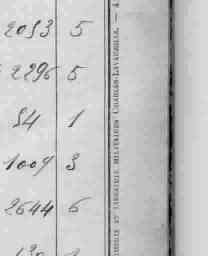 2053 5
2296 5
54 1
1009 3
2644 6
IMPRIMERIE ET LIBRAIRIE MILITAIRES CHARLES-LAVAUZELLE. —